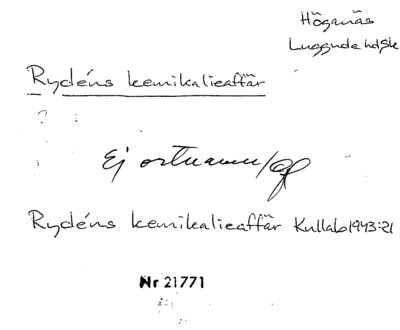 Höganäs
Luggude hdsk
Rydéns kemikalieaffär
?
Ej ortnamn/
Rydéns kemikalieaffär Kullab 1943:21
Nr 21771